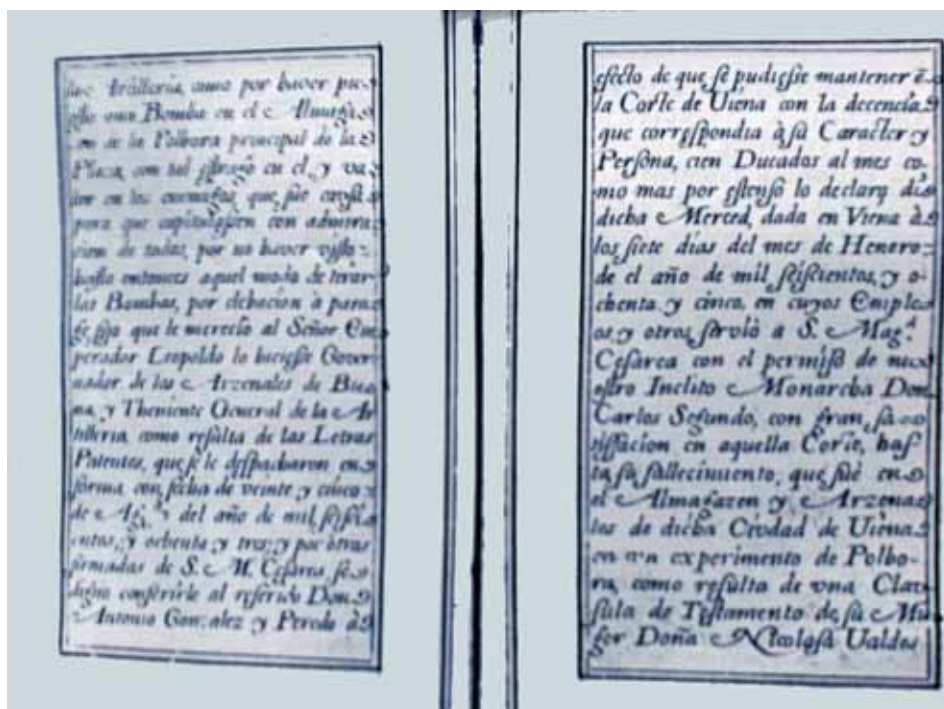 Artilleria, como por haver pu-
esto una Bomba en el Almaga-
cen de la Polbora principal de la
Plaza, con tal estrago en el, y va-
lor en los enemigos, que fue
para que capitulassen con admira-
cion de todos, por no haver visto
hasta entonces aquel modo de tirar
las Bombas, por elebacion a para-
que le merecio al Señor Em-
perador Leopoldo lo hiciesse Gover-
nador de los Arzenales de Vie-
na, y Theniente General de la Ar-
tilleria, como resulta de las Letras
Patentes, que se le despacharon en
forma, con fecha de veinte y cinco
de Ag.to del año de mil seisci-
entos, y ochenta y tres; y por otras
firmadas de S. M. Cesarea, se
digno conferirle al referido Don
Antonio Gonzalez y Peredo à
efecto de que se pudiesse mantener ē
la Corte de Uiena con la decencia
que correspondia à su Caracter y
Persona, cien Ducados al mes co-
mo mas por estenso lo declara
dicha Merced, dada en Viena à
los siete dias del mes de Henero
de el año de mil seiscientos, y o-
chenta y cinco, en cuyos Emple-
os y otros sirviò a S. Mag.d
Cesarea con el permisso de nu-
estro Inclito Monarcha Don
Carlos Segundo, con gran sa-
tisfacion en aquella Corte, has-
ta su fallecimiento, que fuè en
el Almagazen y Arzena-
les de dicha Ciudad de Uiena
en vn experimento de Polbo-
ra, como resulta de vna Clau-
sula de Testamento de su Mu-
ger Doña Nicolasa Ualdes